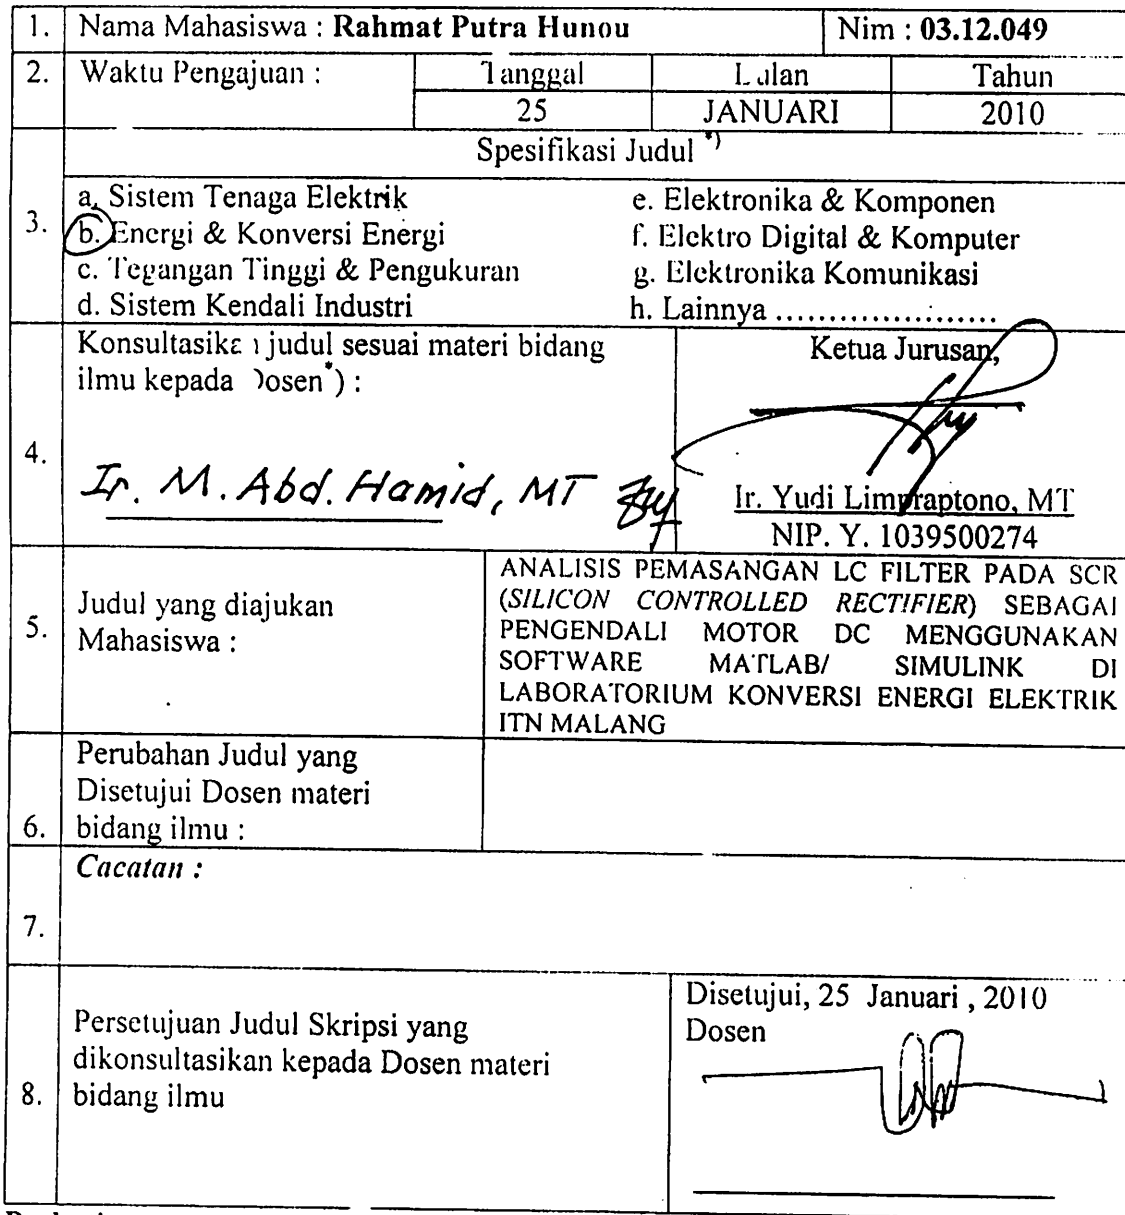 1. Nama Mahasiswa : Rahmat Putra Hunou Nim : 03.12.049
2. Waktu Pengajuan : Tanggal Bulan Tahun
25 JANUARI 2010
Spesifikasi Judul *)
3.
a. Sistem Tenaga Elektrik
b. Energi & Konversi Energi
c. Tegangan Tinggi & Pengukuran
d. Sistem Kendali Industri
e. Elektronika & Komponen
f. Elektro Digital & Komputer
g. Elektronika Komunikasi
h. Lainnya ......................
4.
Konsultasikan judul sesuai materi bidang
ilmu kepada Dosen*) :
Ir. M. Abd. Hamid, MT
Ketua Jurusan,
Ir. Yudi Limpraptono, MT
NIP. Y. 1039500274
5.
Judul yang diajukan
Mahasiswa :
ANALISIS PEMASANGAN LC FILTER PADA SCR
(SILICON CONTROLLED RECTIFIER) SEBAGAI
PENGENDALI MOTOR DC MENGGUNAKAN
SOFTWARE MATLAB/ SIMULINK DI
LABORATORIUM KONVERSI ENERGI ELEKTRIK
ITN MALANG
6.
Perubahan Judul yang
Disetujui Dosen materi
bidang ilmu :
7.
Cacatan :
8.
Persetujuan Judul Skripsi yang
dikonsultasikan kepada Dosen materi
bidang ilmu
Disetujui, 25 Januari , 2010
Dosen